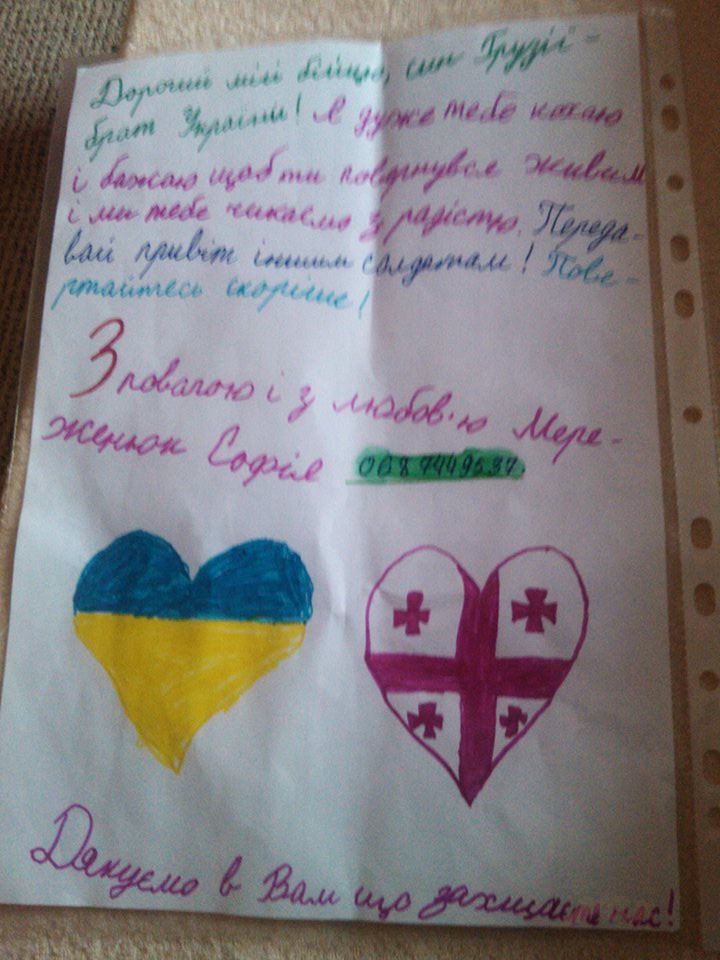 Дорогий мій бійцю, син Грузії -
брат України! Я дуже тебе кохаю
і бажаю щоб ти повернувся живим
і ми тебе чикаємо з радістю. Переда-
вай привіт іншим солдатам! Пове-
ртайтесь скоріше!
З повагою і з любов'ю Мере-
женюк Софія
Дякуємо в Вам що захищаєте нас!